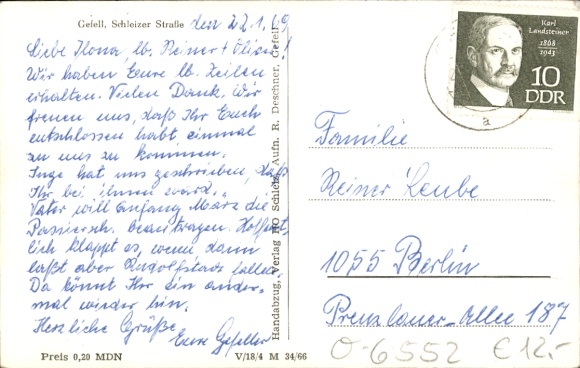 Gefell, Schleizer Straße
den 22.1.69
Liebe Ilona, lb. Reiner + Olien!
Wir haben Eure lb. Zeilen
erhalten. Vielen Dank. Wir
freuen uns, daß Ihr Euch
entschlossen habt einmal
zu uns zu kommen.
Inge hat uns geschrieben, daß
Ihr bei ihnen ward.
Vater will anfang März die
Passiersch. beantragen. Hoffent,
lich klappt es, wenn dann
laßt aber Rudolfstadt fallen.
Da könnt Ihr ein ander,
mal wieder hin.
Herzliche Grüße
Eure Gefeller
Preis 0,20 MDN
V/18/4 M 34/66
Handabzug, Verlag HO Schleiz, Aufn. R. Deschner, Gefell
Karl
Landsteiner
1868
1943
10
DDR
a
Familie
Reiner Leube
1055 Berlin
Prenzlauer-Allee 187
O-6552 €12,-